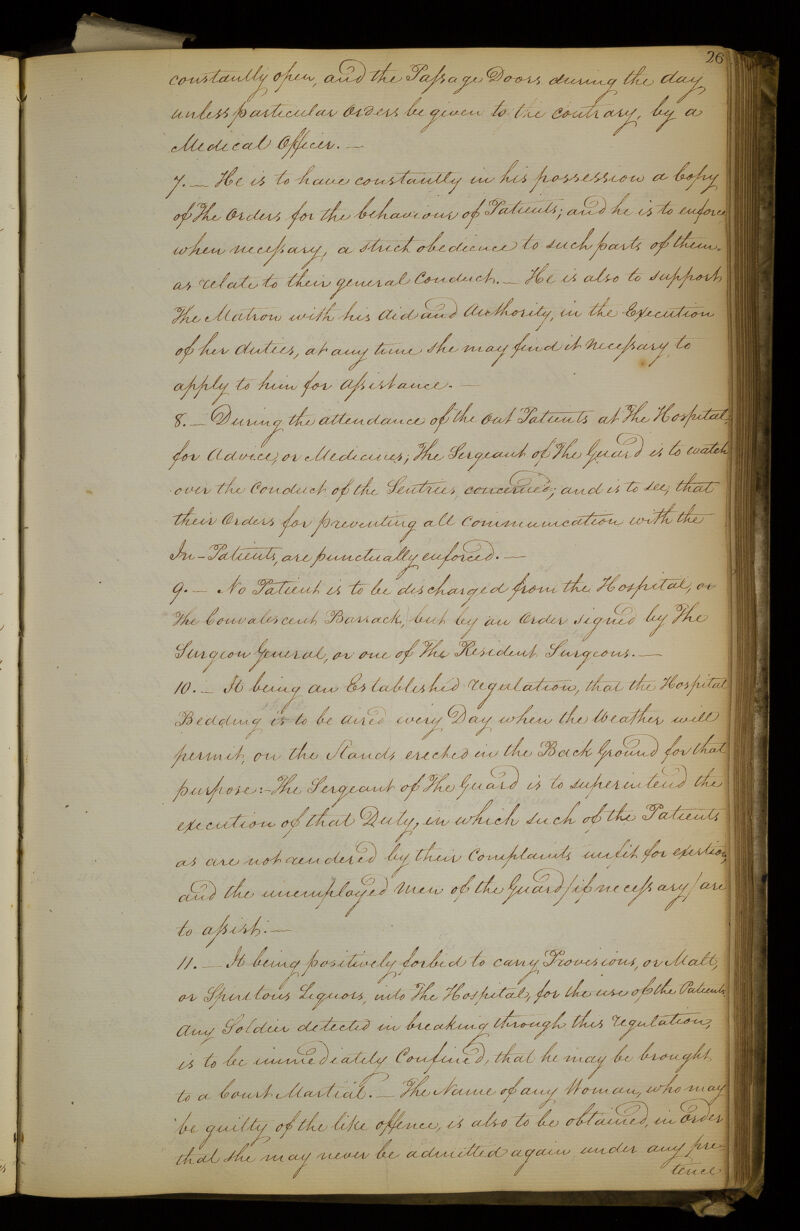 26
constantly open, and the Passage Doors during the day
unless particular Orders be given to the contrary, by a
Medical Officer. —
7. — He is to have constantly in his possession a Copy
of The Orders for the behaviour of Patients; and he is to enforce
when necessary, a strict obedience to such parts of them
as relate to their general Conduct. — He is also to support
The Matron with his Aid and Authority, in the Execution
of her duties, at any time she may find it necessary to
apply to him for Assistance. —
8. — During the attendance of the Out Patients at The Hospital,
for Advice, or Medicines; The Sergeant of The Guard is to watch
over the Conduct of the Sentries concerned; and is to see, that
their Orders for preventing all Communication with the
In-Patients, are punctually enforced. —
9. — No Patient is to be discharged from the Hospital, or
The Convalescent Barrack, but by an Order signed by The
Surgeon General, or one of The Resident Surgeons. —
10. — It being an Established regulation, that the Hospital
Bedding is to be aired every Day when the Weather will
permit, on the Stands erected in the Back Ground for that
purpose: — The Sergeant of The Guard is to superintend the
execution of that Duty, in which such of the Patients
as are not rendered by their Complaints unfit for exertion,
and the unemployed Men of the Guard / if necessary / are
to assist. —
11. — It being positively forbid to carry Provisions, or Malt,
or Spiritous Liquors, into The Hospital, for the use of the Patients
Any Soldier detected in breaking through this regulation,
is to be immediately Confined, that he may be brought
to a Court Martial. — The Name of any Woman, who may
be guilty of the like offence, is also to be obtained, in Order
that she may never be admitted again under any pre-
tence